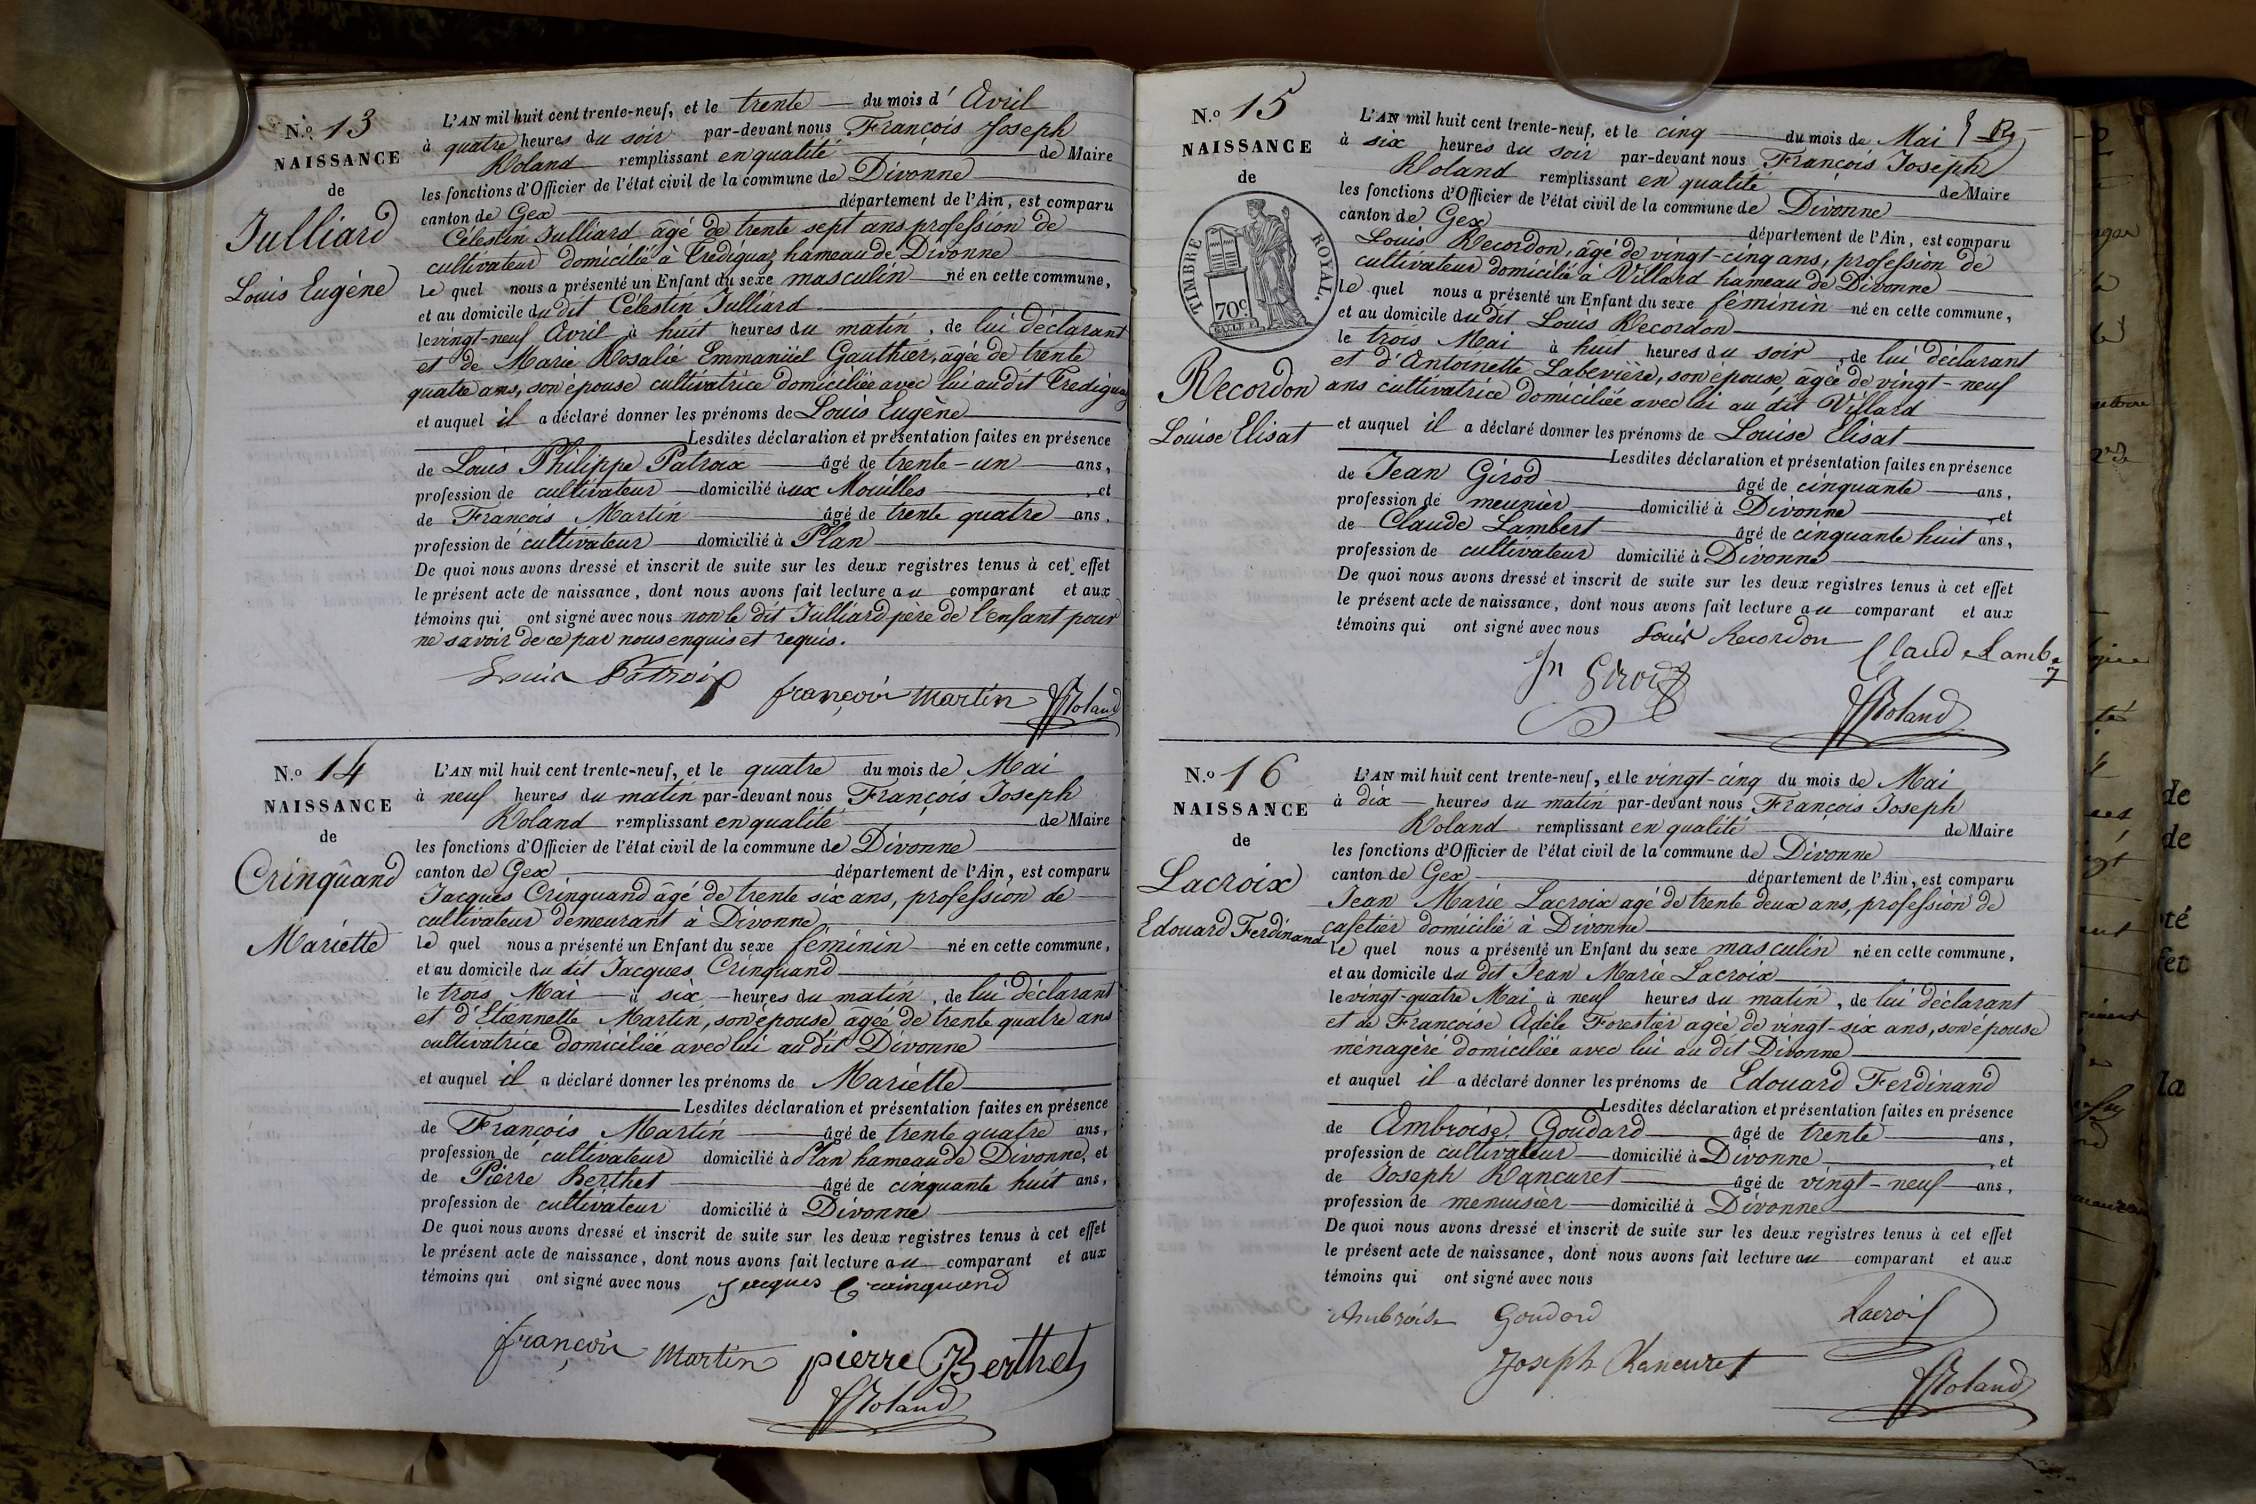 N.º 13
NAISSANCE
de
Julliard
Louis Eugène
L'AN mil huit cent trente-neuf, et le trente du mois d'Avril
à quatre heures du soir par-devant nous François Joseph
Roland remplissant en qualité de Maire
les fonctions d'Officier de l'état civil de la commune de Divonne
canton de Gex département de l'Ain, est comparu
Célestin Julliard âgé de trente sept ans profession de
cultivateur domicilié à Trediguaz hameau de Divonne
le quel nous a présenté un Enfant du sexe masculin né en cette commune,
et au domicile du dit Célestin Julliard
le vingt-neuf Avril à huit heures du matin, de lui déclarant
et de Marie Rosalie Emmanüel Gauthier, âgée de trente
quatre ans, son épouse cultivatrice domiciliée avec lui au dit Trediguaz
et auquel il a déclaré donner les prénoms de Louis Eugène
Lesdites déclaration et présentation faites en présence
de Louis Philippe Patroix âgé de trente-un ans,
profession de cultivateur domicilié aux Mouilles, et
de François Martin âgé de trente quatre ans,
profession de cultivateur domicilié à Plan
De quoi nous avons dressé et inscrit de suite sur les deux registres tenus à cet effet
le présent acte de naissance, dont nous avons fait lecture au comparant et aux
témoins qui ont signé avec nous non le dit Julliard père de l'enfant pour
ne savoir de ce par nous enquis et requis.
Louis Patroix
françois martin FJRoland
N.º 14
NAISSANCE
de
Crinquand
Mariette
L'AN mil huit cent trente-neuf, et le quatre du mois de Mai
à neuf heures du matin par-devant nous François Joseph
Roland remplissant en qualité de Maire
les fonctions d'Officier de l'état civil de la commune de Divonne
canton de Gex département de l'Ain, est comparu
Jacques Crinquand âgé de trente six ans, profession de
cultivateur demeurant à Divonne
le quel nous a présenté un Enfant du sexe féminin né en cette commune,
et au domicile du dit Jacques Crinquand
le trois Mai à six heures du matin, de lui déclarant
et d'Etiennette Martin, son épouse agée de trente quatre ans
cultivatrice domiciliée avec lui au dit Divonne
et auquel il a déclaré donner les prénoms de Mariette
Lesdites déclaration et présentation faites en présence
de François Martin âgé de trente quatre ans,
profession de cultivateur domicilié à Plan hameau de Divonne, et
de Pierre Berthet âgé de cinquante huit ans,
profession de cultivateur domicilié à Divonne
De quoi nous avons dressé et inscrit de suite sur les deux registres tenus à cet effet
le présent acte de naissance, dont nous avons fait lecture au comparant et aux
témoins qui ont signé avec nous Jacques Crainquand
françois martin pierre Berthet
FJRoland
N.º 15
NAISSANCE
de
TIMBRE ROYAL.
70c
Recordon
Louise Elisat
L'AN mil huit cent trente-neuf, et le cinq du mois de Mai
à six heures du soir par-devant nous François Joseph
Roland remplissant en qualité de Maire
les fonctions d'Officier de l'état civil de la commune de Divonne
canton de Gex département de l'Ain, est comparu
Louis Recordon, âgé de vingt-cinq ans, profession de
cultivateur domicilié à Villard hameau de Divonne
le quel nous a présenté un Enfant du sexe féminin né en cette commune,
et au domicile du dit Louis Recordon
le trois Mai à huit heures du soir, de lui déclarant
et d'Antoinette Labevière, son épouse, âgée de vingt-neuf
ans cultivatrice domiciliée avec lui au dit Villard
et auquel il a déclaré donner les prénoms de Louise Elisat
Lesdites déclaration et présentation faites en présence
de Jean Girod âgé de cinquante ans,
profession de meunier domicilié à Divonne, et
de Claude Lambert âgé de cinquante huit ans,
profession de cultivateur domicilié à Divonne
De quoi nous avons dressé et inscrit de suite sur les deux registres tenus à cet effet
le présent acte de naissance, dont nous avons fait lecture au comparant et aux
témoins qui ont signé avec nous Louis Recordon Claude Lamb
Jn Girod
FJRoland
N.º 16
NAISSANCE
de
Lacroix
Edouard Ferdinand
L'AN mil huit cent trente-neuf, et le vingt-cinq du mois de Mai
à dix heures du matin par-devant nous François Joseph
Roland remplissant en qualité de Maire
les fonctions d'Officier de l'état civil de la commune de Divonne
canton de Gex département de l'Ain, est comparu
Jean Marie Lacroix agé de trente deux ans, profession de
cafetier domicilié à Divonne
le quel nous a présenté un Enfant du sexe masculin né en cette commune,
et au domicile du dit Jean Marie Lacroix
le vingt-quatre Mai à neuf heures du matin, de lui déclarant
et de Françoise Adèle Forestier agée de vingt-six ans, son épouse
ménagère domiciliée avec lui au dit Divonne
et auquel il a déclaré donner les prénoms de Edouard Ferdinand
Lesdites déclaration et présentation faites en présence
de Ambroise Goudard âgé de trente ans,
profession de cultivateur domicilié à Divonne, et
de Joseph Rancuret âgé de vingt-neuf ans,
profession de menuisier domicilié à Divonne
De quoi nous avons dressé et inscrit de suite sur les deux registres tenus à cet effet
le présent acte de naissance, dont nous avons fait lecture au comparant et aux
témoins qui ont signé avec nous
Ambroise Goudard Lacroix
Joseph Rancuret
FJRoland